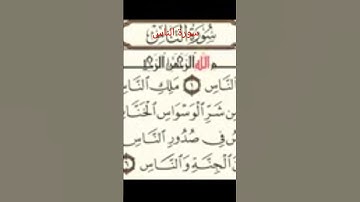 سُورَةُ النَّاسِ
سورة الناس
م اللَّهِ الرَّحْمَٰنِ الرَّحِي
النَّاسِ ١ مَلِكِ النَّاس
شَرِّ الْوَسْوَاسِ الْخَنَّا
فِي صُدُورِ النَّاسِ
الْجِنَّةِ وَالنَّاسِ ٦